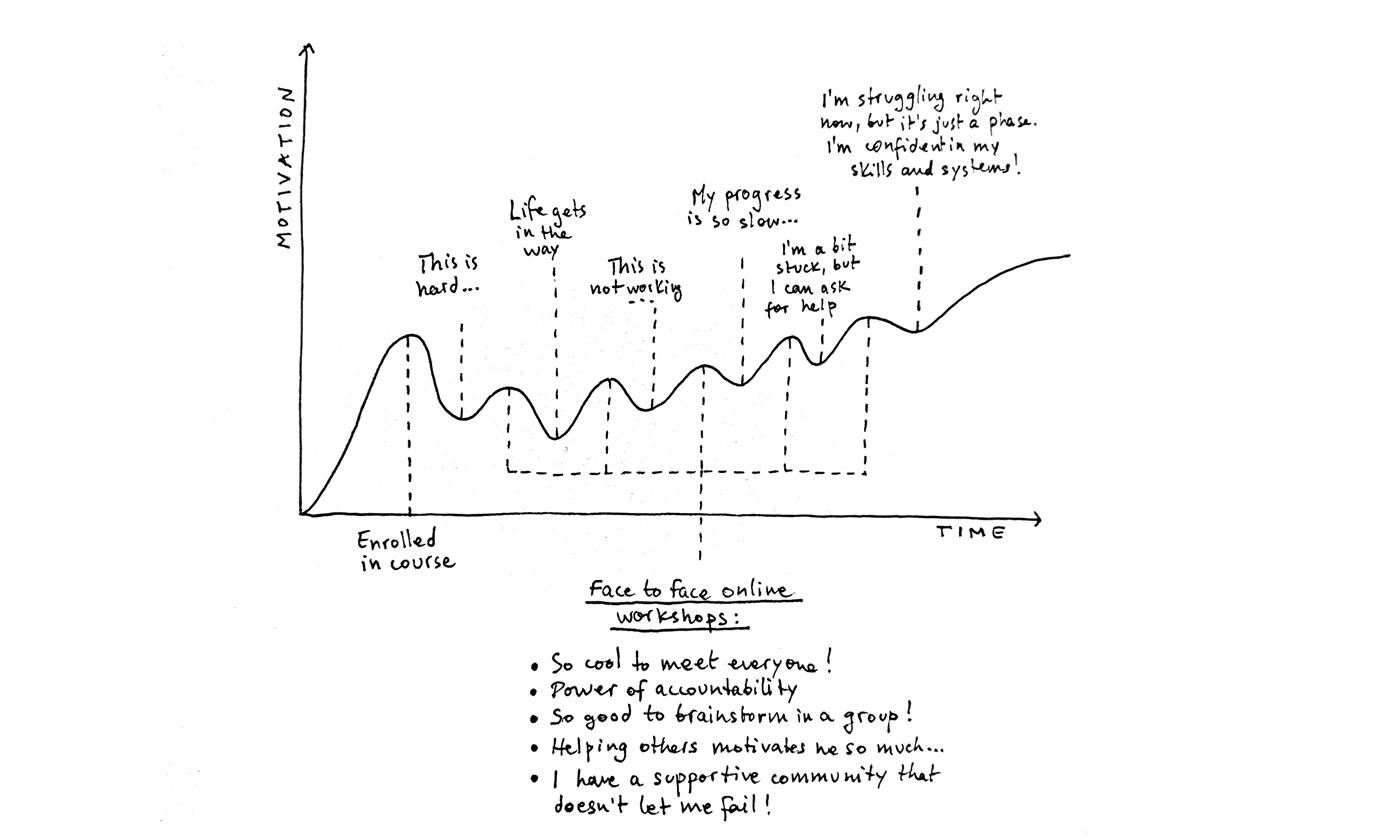 MOTIVATION
This is
hard...
Life gets
in the
way
This is
not working
...
My progress
is so slow...
I'm a bit
stuck, but
I can ask
for help
I'm struggling right
now, but it's just a phase.
I'm confident in my
skills and systems!
TIME
Enrolled
in course
Face to face online
workshops:
• So cool to meet everyone!
• Power of accountability
• So good to brainstorm in a group!
• Helping others motivates me so much...
• I have a supportive community that
doesn't let me fail!